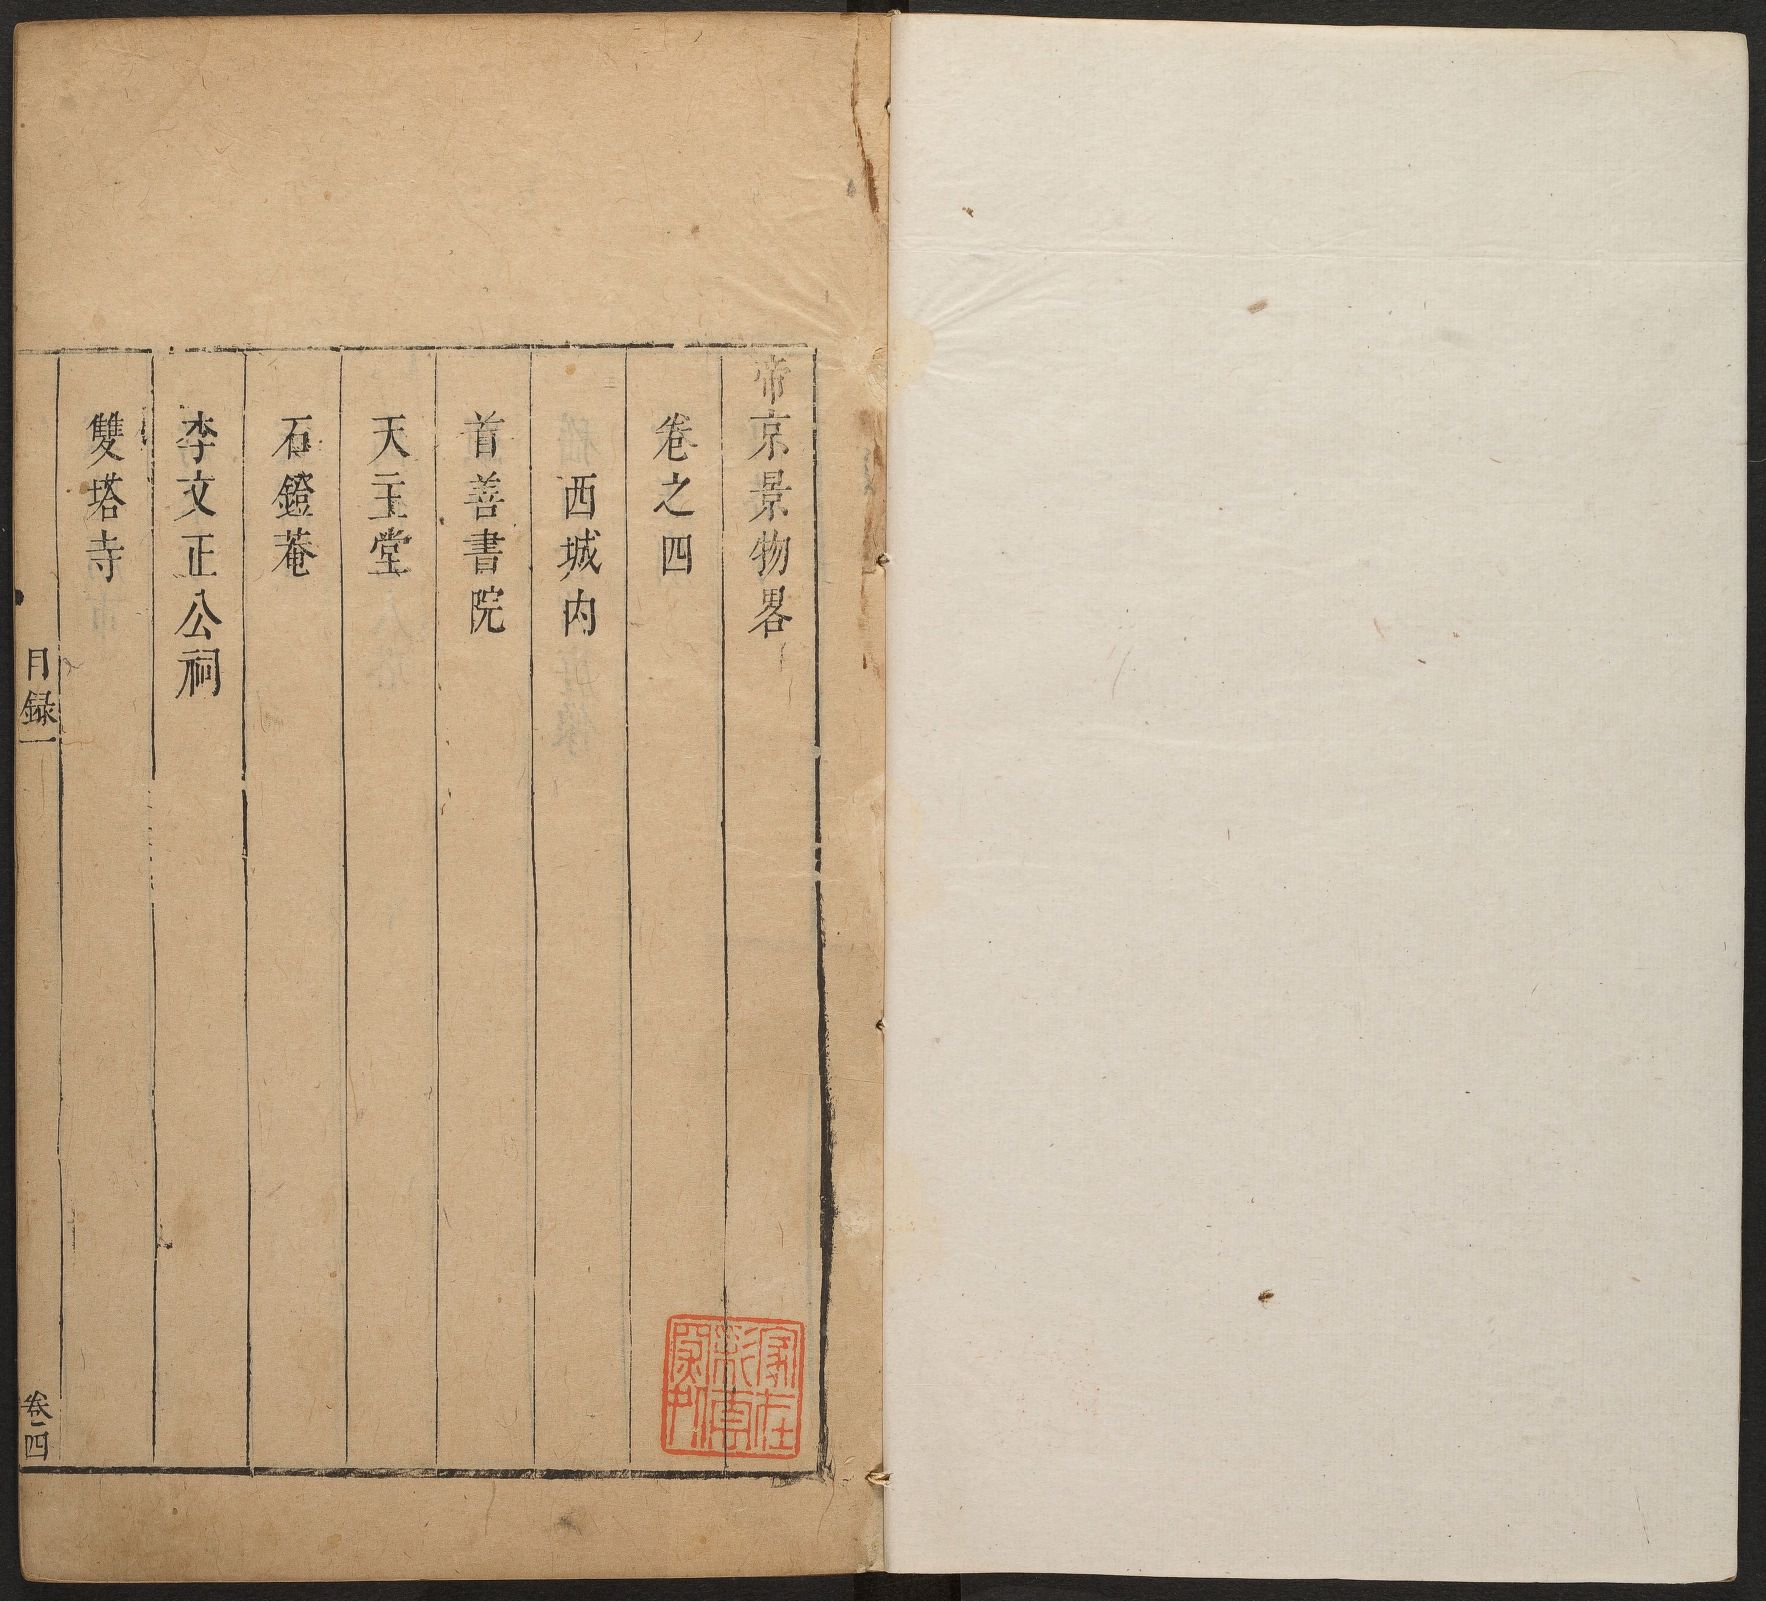 帝京景物畧
卷之四
西城内
首善書院
天主堂
石鐙菴
李文正公祠
雙塔寺
目録一
卷四
家在
彭亭